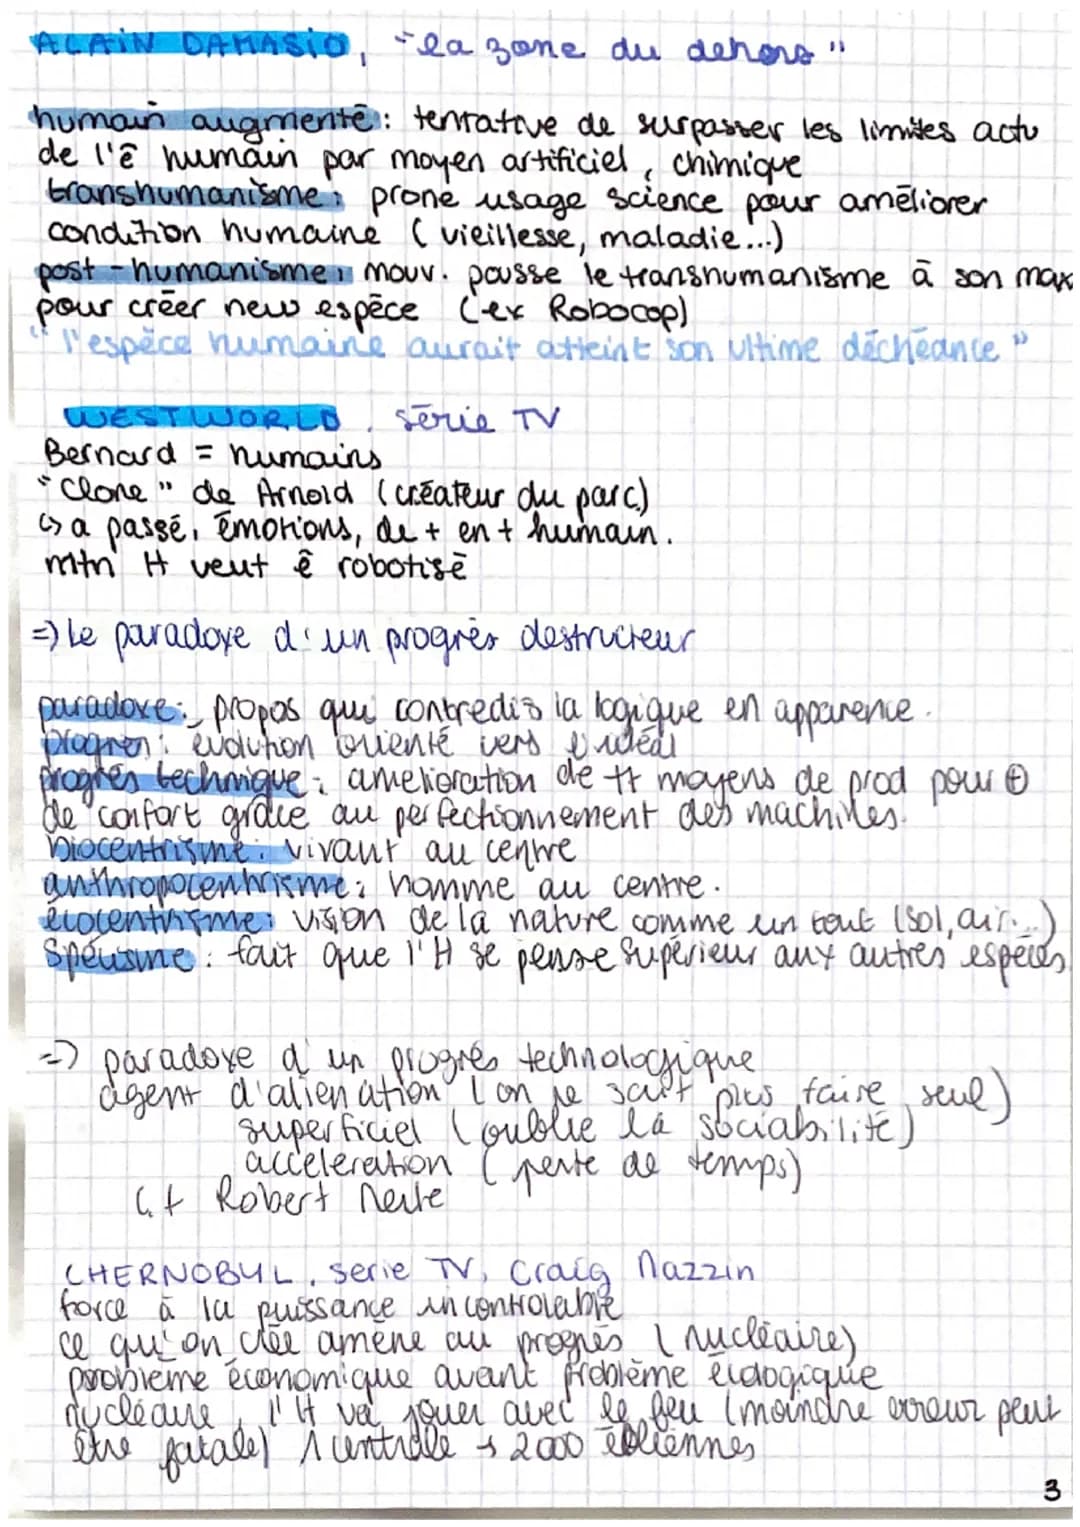 ALAIN DAMASIO, "la zone du dehors"
humain augmenté : tentative de surpasser les limites actu
de l'ê humain par moyen artificiel, chimique
transhumanisme : prone usage science pour améliorer
condition humaine (vieillesse, maladie...)
post-humanisme : mouv. pousse le transhumanisme à son max
pour créer new espèce (ex Robocop)
"l'espèce humaine aurait atteint son ultime déchéance"
WESTWORLD, série TV
Bernard = humains
"Clone" de Arnold (créateur du parc)
↳ a passé, émotions, de + en + humain.
mtn H veut ê robotisé
=> Le paradoxe d'un progrès destructeur
paradoxe : propos qui contredis la logique en apparence.
progres : évolution orienté vers l'idéal
progrès technique : amelioration de tt moyens de prod pour ⊕
de confort grâce au perfectionnement des machines.
biocentrisme : vivant au centre
anthropocentrisme : homme au centre.
écocentrisme : vision de la nature comme un tout (sol, air...)
Spécisme : fait que l'H se pense supérieur aux autres espèces
=> paradoxe d'un progrès technologique
agent d'alienation (on ne sait plus faire seul)
superficiel (oublie la sociabilité)
acceleration (perte de temps)
↳ + Robert
CHERNOBYL, serie TV, Craig Mazzin
force à la puissance incontrolable
ce qu'on crée amène au progrès (nucléaire)
problème économique avant problème écologique
nucléaire, l'H va jouer avec le feu (moindre erreur peut
être fatale) 1 centrale → 2000 éoliennes
3